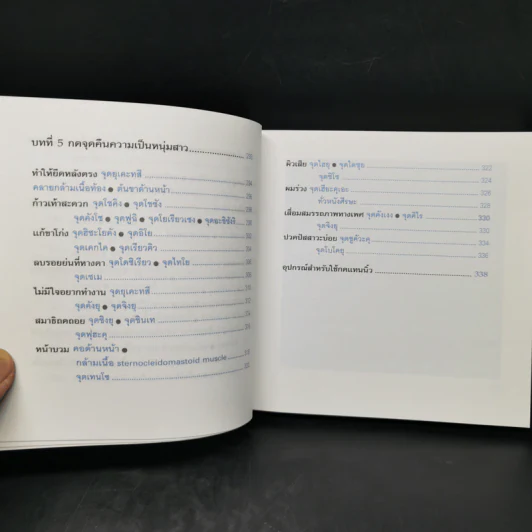 บทที่ 5 กดจุดคืนความเป็นหนุ่มสาว
ทำให้ยืดหลังตรง จุดยุเคะทสึ
คลายกล้ามเนื้อท้อง ● ต้นขาด้านหน้า
ก้าวเท้าสะดวก จุดโชคิง ● จุดโชซัง
จุดคังโซ ● จุดฟูฉิ ● จุดโยเรียวเซง ●
แก้ขาโก่ง จุดฮิซะโยคัง ● จุดอิโย
จุดเคกไค ● จุดเรียวคิว
ลบรอยย่นที่หางตา จุดโดชิเรียว ● จุดไทโย
จุดเซเม
ไม่มีใจอยากทำงาน จุดยุเคะทสึ
จุดคังยุ ● จุดจิงยุ
สมาธิถดถอย จุดชิงยุ ● จุดชินเท
จุดฟุฮะคุ
หน้าบวม คอด้านหน้า ●
กล้ามเนื้อ sternocleidomastoid muscle
จุดเทนโช
ผิวเสีย จุดไฮยุ ● จุดไดชุย 322
จุดชิโช 324
ผมร่วง จุดเฮียะคุเอะ 326
หัวหนังศีรษะ 328
เสื่อมสมรรถภาพทางเพศ จุดคังเงง ● จุดคิไค 330
จุดจิงยุ 330
ปวดปัสสาวะบ่อย จุดชูคัวะคุ 334
จุดโบโคยุ 336
อุปกรณ์สำหรับใช้กดแทนนิ้ว 338